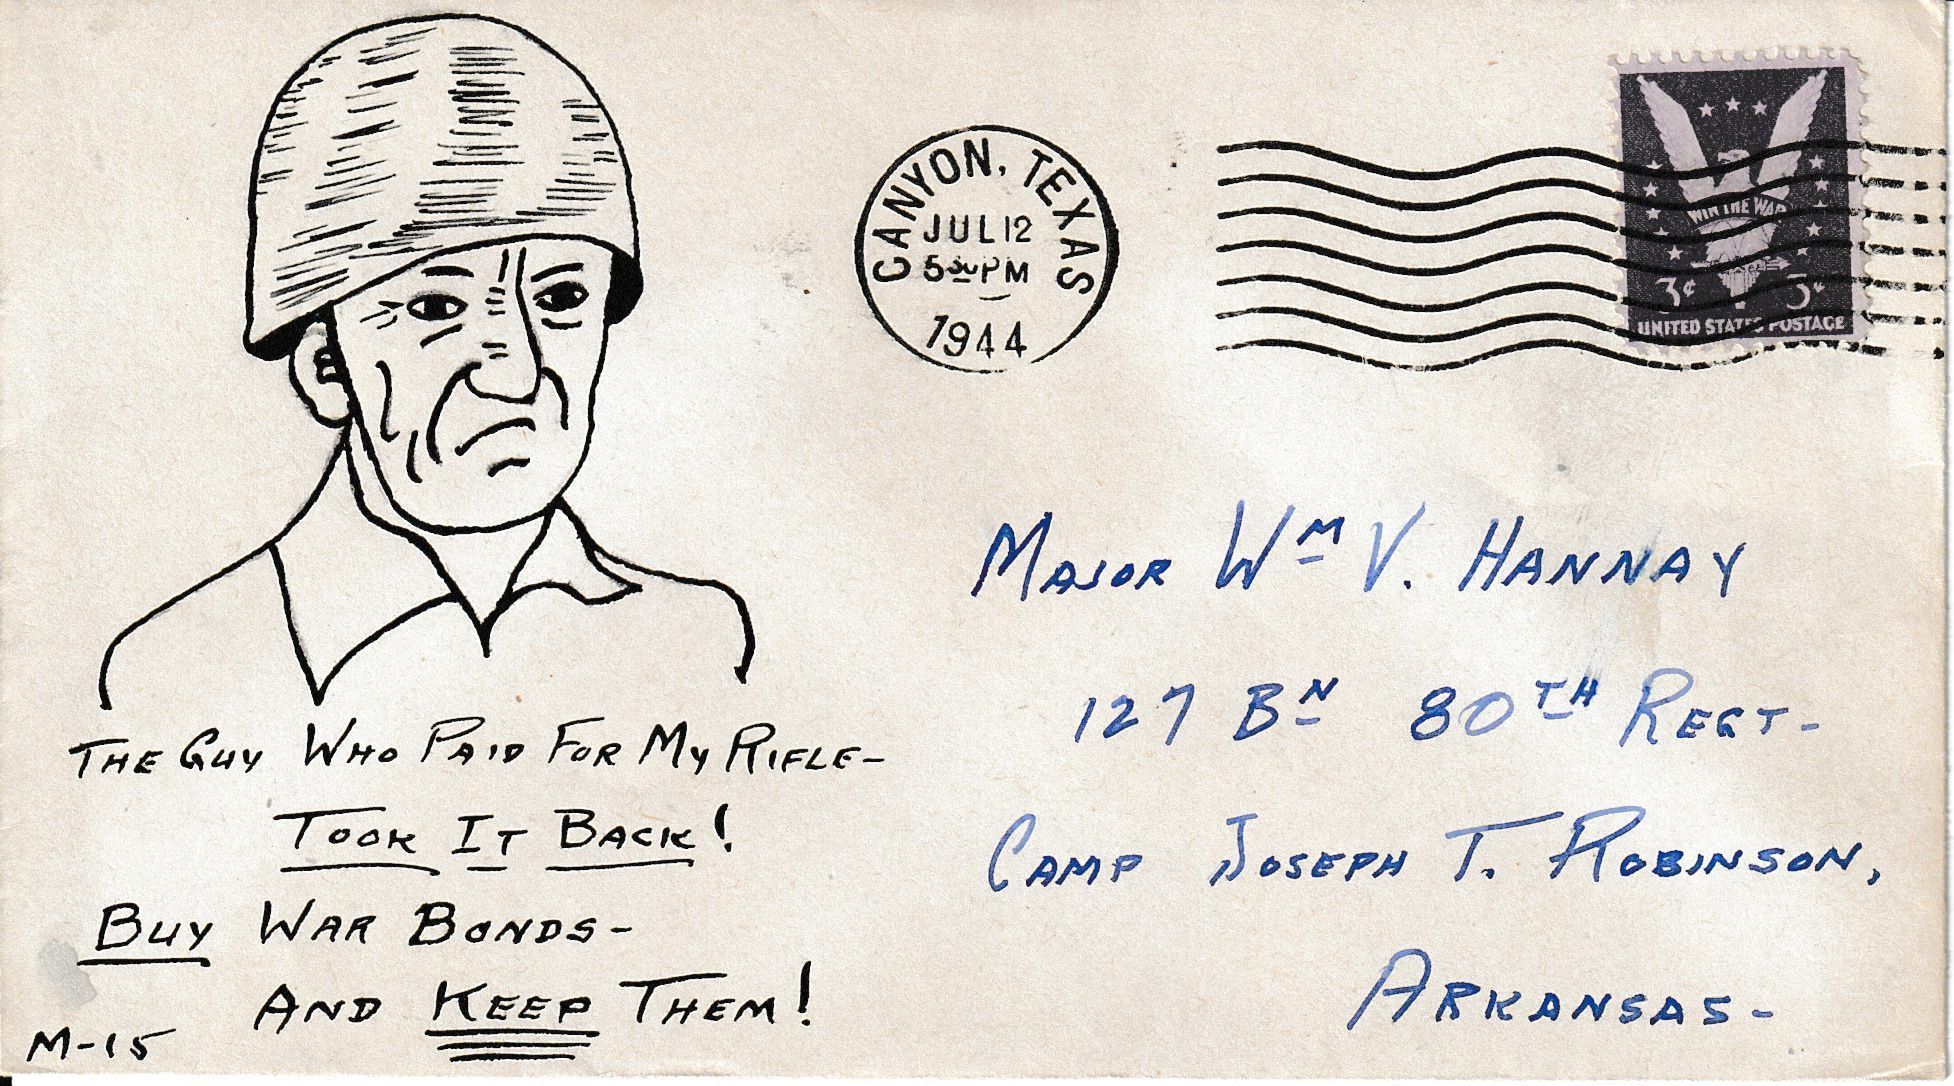 THE GUY WHO PAID FOR MY RIFLE-
TOOK IT BACK!
BUY WAR BONDS-
AND KEEP THEM!
M-15
CANYON, TEXAS
JUL 12
5 30 PM
1944
WIN THE WAR
3¢ 3¢
UNITED STATES POSTAGE
MAJOR WM V. HANNAY
127 BN 80TH REGT-
CAMP JOSEPH T. ROBINSON,
ARKANSAS-